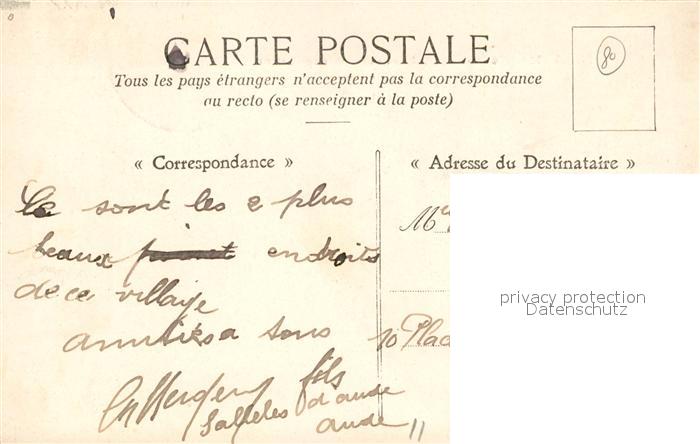 CARTE POSTALE
Tous les pays étrangers n'acceptent pas la correspondance
au recto (se renseigner à la poste)
80
« Correspondance »
« Adresse du Destinataire »
Ce sont les 2 plus
beaux endroits
de ce village
amitiés a tous
fils
Salleles d'aude
aude
10 Plac
privacy protection
Datenschutz